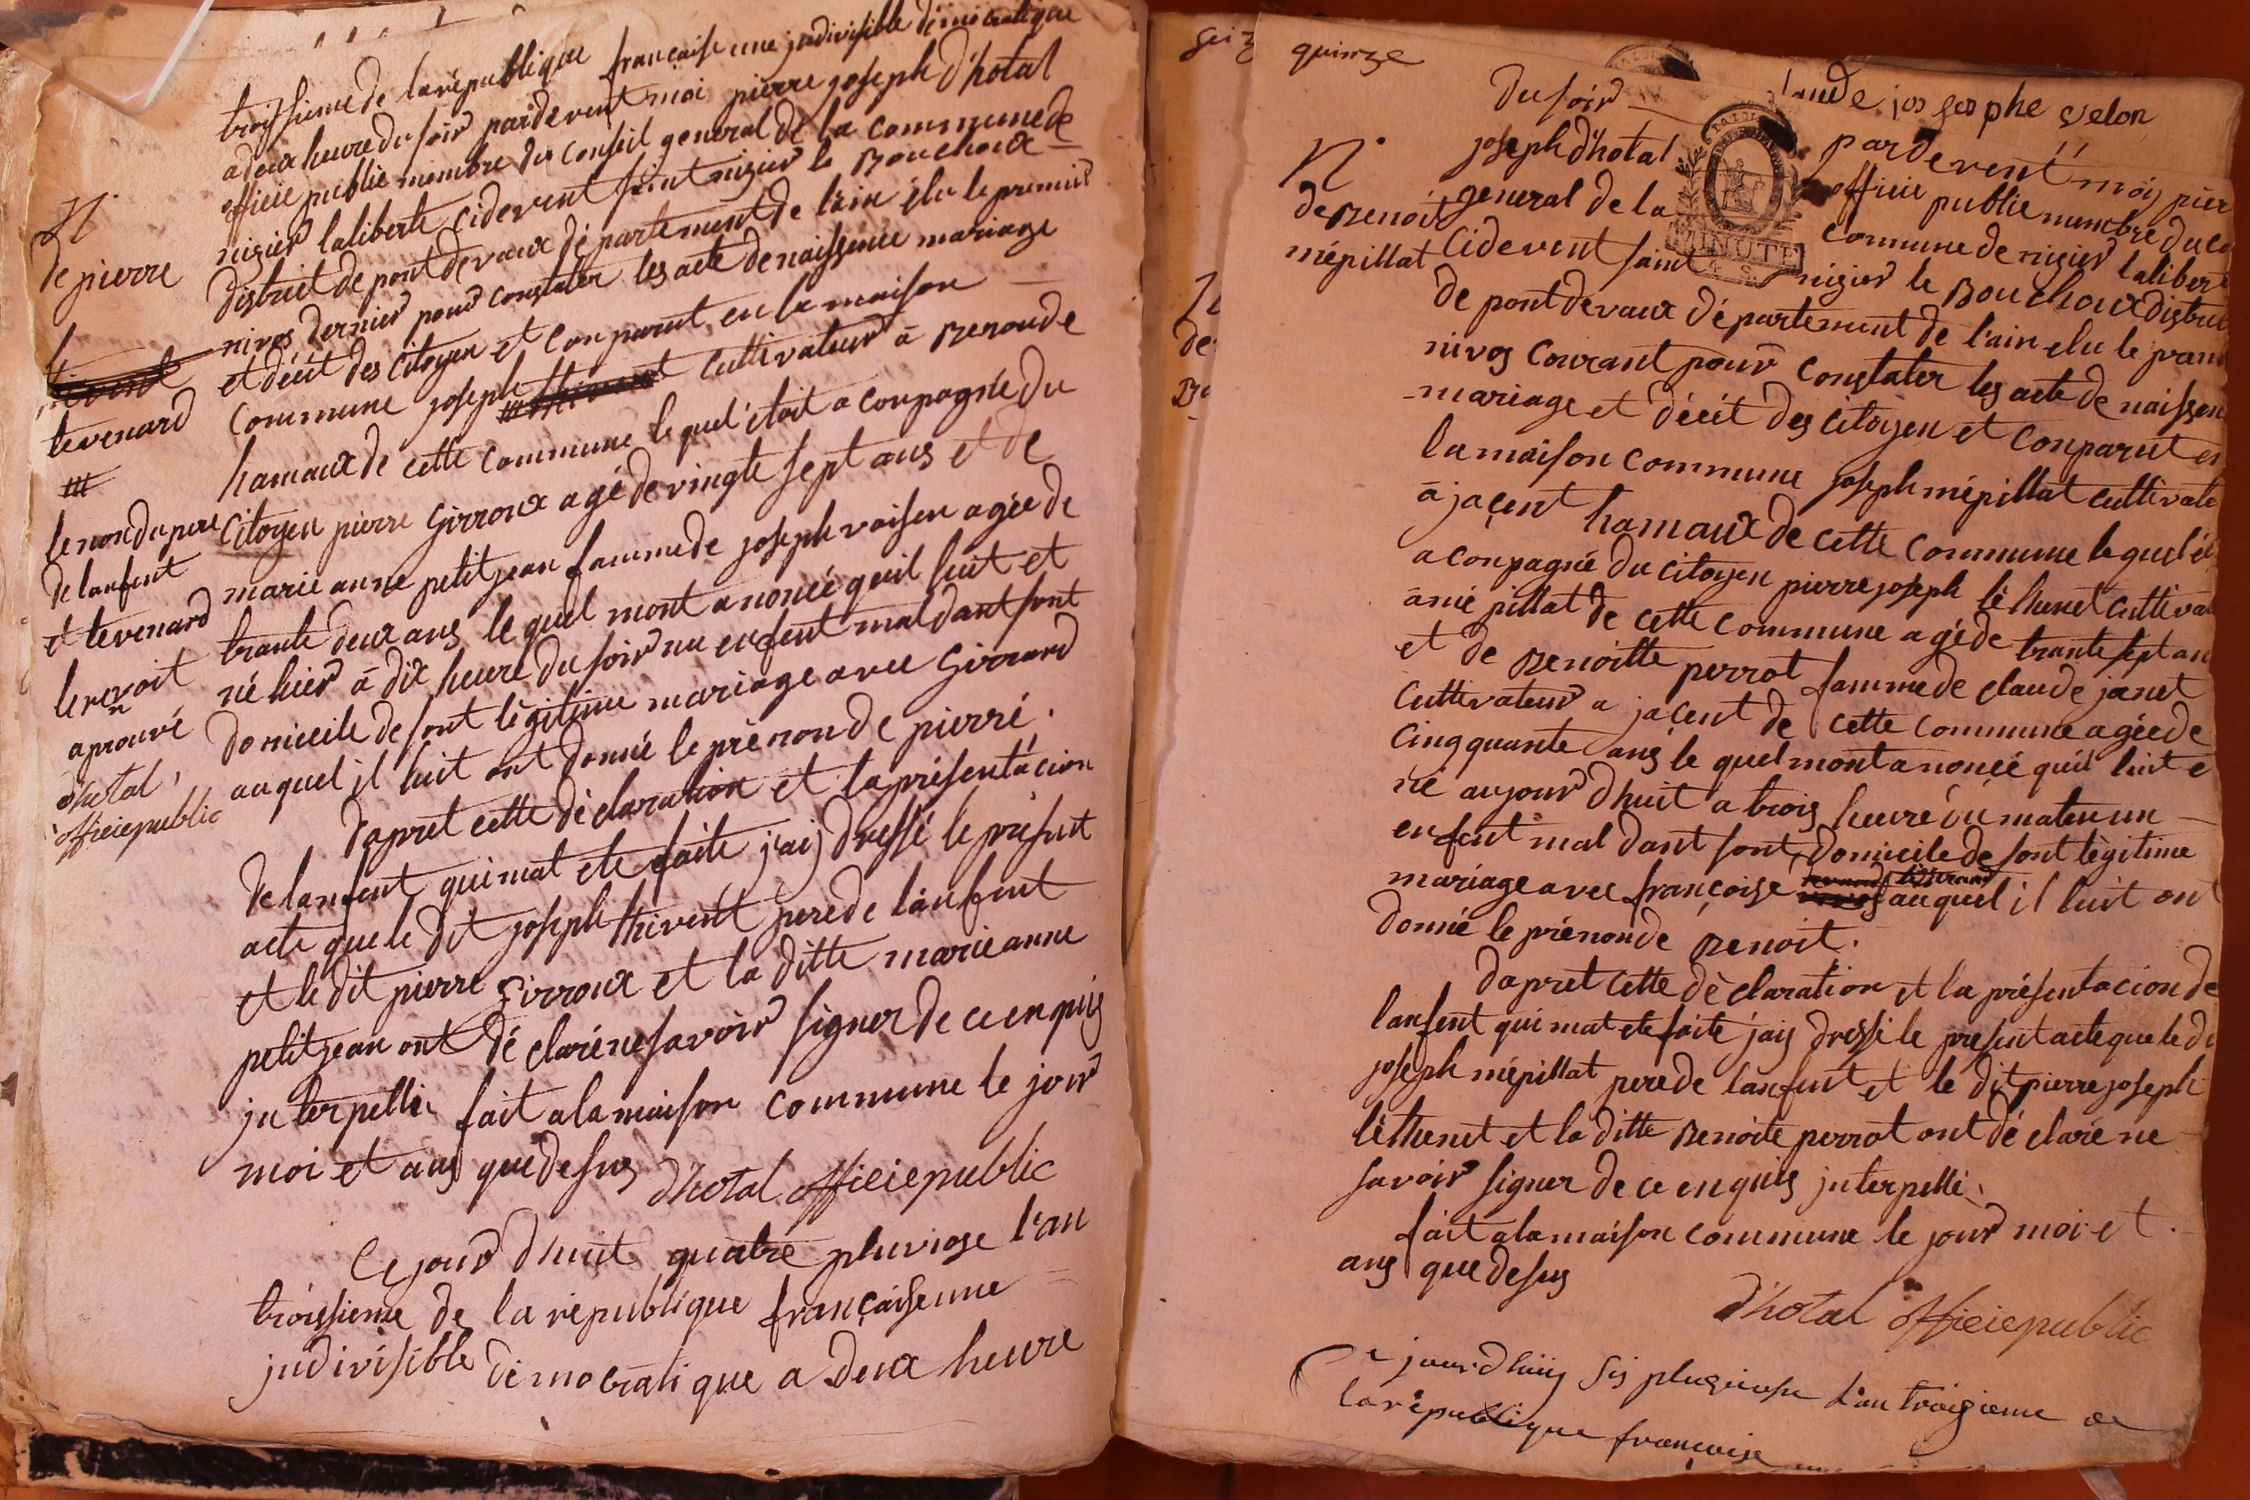 troissieme de la république française une jndivisible démocratique
a deux heure du soir pardevent moi pierre joseph d'hotal
officié publie membre du conseil general de la commune de
nizier laliberté cidevent saint nizier le Bouchoux
district de pont devaux département de l'ain élu le premier
nivos dernier pour constater les acte de naissence mariage
et décit des citoyen et conparut en la maison
commune joseph thivent cultivateur a Renoude
hamaux de cette commune le quel étoit a conpagnée du
citoyen pierre Girroux agé de vingte sept ans et de
marie anne petitjean famme de joseph voisen agée de
trante deux ans le quel mont anoncé queil luit et
né hier à dix heure du soir un enfent mal dant sont
domicile de sont légitime mariage avec Girrard
au quel il luit ont donné le prénon de pierre.
dapret cette déclaration et la présentácion
de lanfent qui mat ete faite j'aij dressé le présent
acte que le dit joseph thivent pere de lanfent
et le dit pierre Girroux et la ditte marie anne
petitjean ont dé claré ne savoir signer de ce en quis
jnterpellé fait a la maison commune le jour
moi et ans que desus
d'hotal officiepublic
Ce jour d'huit quatre pluviose l'an
troissieme de la république française une
jndivisible démocratique a deux heure
N.
de pierre
tevenard
le non du pere
de lanfent
et tevenard
le revoit
aprouvé
d'hotal
officiepublic
quinze
du soir
joseph d'hotal
general de la
cidevent saint
laude jos gosphe velon
pardevent moij pier
officie publie membre du co
commune de nizier laliberté
nizier le Bouchoux distric
de pont devaux département de l'ain elu le prem
nivos courant pour constater les acte de naissen
mariage et décit des citoyen et conparut en
la maison commune joseph mépillat cultivate
à jaçent hamaux de cette commune le quel ét
a conpagné du citoyen pierre joseph léthenet cultivat
à mé pillat de cette commune agé de trante sept an
et de Renoitte perrot famme de claude janet
cultivateur a jaçent de cette commune agée de
cinqquante ans le quel mont anoncé quil luit e
né aujour dhuit a trois heure du maten un
enfent mal dant sont domicile de sont légitime
mariage avec françoise auquel il luit ont
donné le prénon de Renoit.
dapret cette déclaration et la présentacion de
lanfent qui mat ete faite jaij dressé le present acte que le di
joseph mépillat pere de lanfent et le dit pierre joseph
léthenet et la ditte Renoite perrot ont dé claré ne
savoir signer de ce en quis jnterpellé
fait a la maison commune le jour moi et
ans que desus
d'hotal officiepublic
Ce jourdhuij sis pluviose l'an troisieme de
la république françoise
N.
de Renoit
mépillat